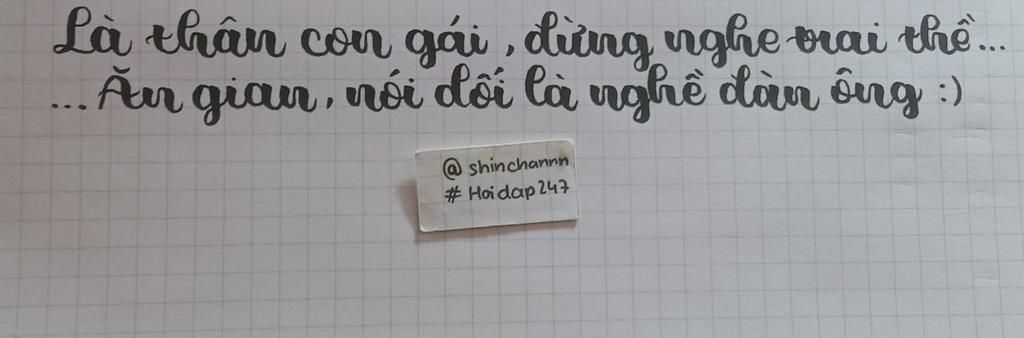 Là thân con gái, đừng nghe trai thề...
... Ăn gian, nói dối là nghề đàn ông :)
@ shinchannn
# Hoidap247